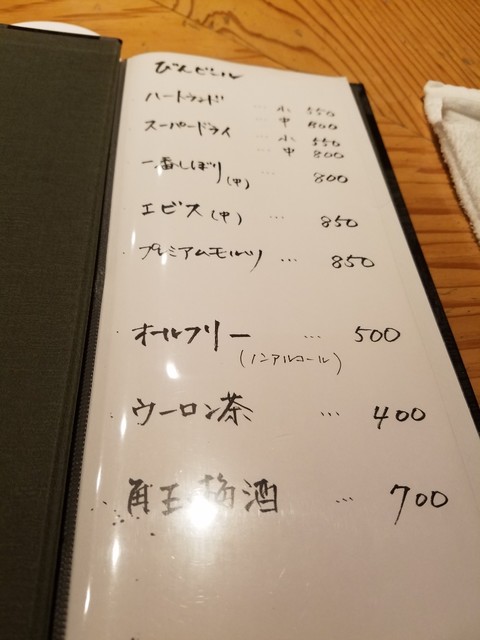 びんビール
ハートランド … 小 550
中 800
スーパードライ … 小 550
… 中 800
一番しぼり(中) … 800
エビス(中) … 850
プレミアムモルツ … 850
オールフリー … 500
(ノンアルコール)
ウーロン茶 … 400
角玉梅酒 … 700